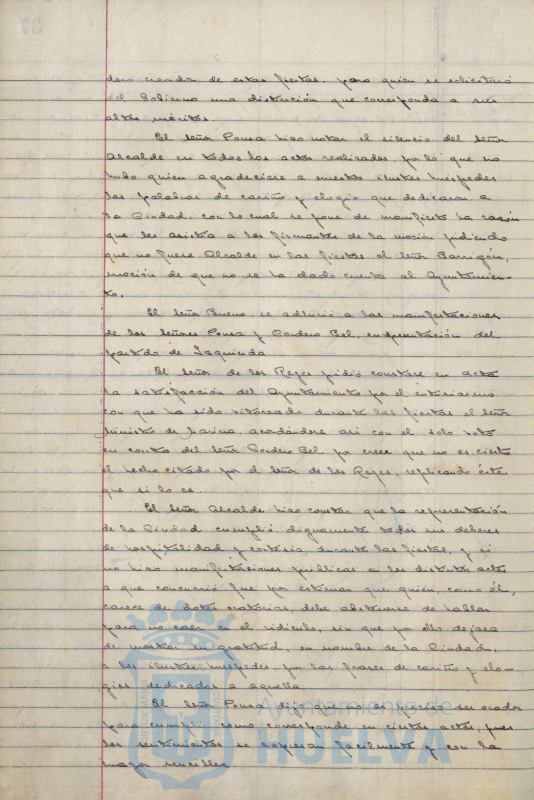 dero creador de estas fiestas, para quien se solicitará
del Gobierno una distinción que corresponda a sus
altos méritos.
El Señor Ponsa hizo notar el silencio del Señor
Alcalde en todos los actos realizados, por lo que no
hubo quien agradeciese a nuestros ilustres huéspedes
las palabras de cariño y elogio que dedicaron a
la Ciudad, con lo cual se pone de manifiesto la razón
que les asistía a los firmantes de la moción pidiendo
que no fuese Alcalde en las fiestas el Señor Barrigón,
moción de que no se ha dado cuenta al Ayuntamien-
to.
El Señor Bueno se adhirió a las manifestaciones
de los Señores Ponsa y Cordero Bel, en representación del
partido de Izquierda.
El Señor de los Reyes pidió constase en acta
la satisfacción del Ayuntamiento por el entusiasmo
con que ha sido vitoreado durante las fiestas el Señor
Ministro de Marina acordándose así con el solo voto
en contra del Señor Cordero Bel por creer que no es cierto
el hecho citado por el Señor de los Reyes, replicando éste
que si lo es.
El Señor Alcalde hizo constar que la representación
de la Ciudad cumplió dignamente todos sus deberes
de hospitalidad y cortesía durante las fiestas, y si
no hizo manifestaciones públicas en los distintos actos
a que concurrió fue por estimar que quien, como él,
carece de dotes oratorias, debe abstenerse de hablar
para no caer en el ridículo, sin que por ello dejara
de mostrar su gratitud, en nombre de la Ciudad,
a los ilustres huéspedes por las frases de cariño y elo-
gios dedicadas a aquella.
El Señor Ponsa dijo que no es preciso ser orador
para cumplir como corresponde en ciertos actos, pues
los sentimientos se expresan facilmente y con la
mayor sencillez
Ayuntamiento de
HUELVA